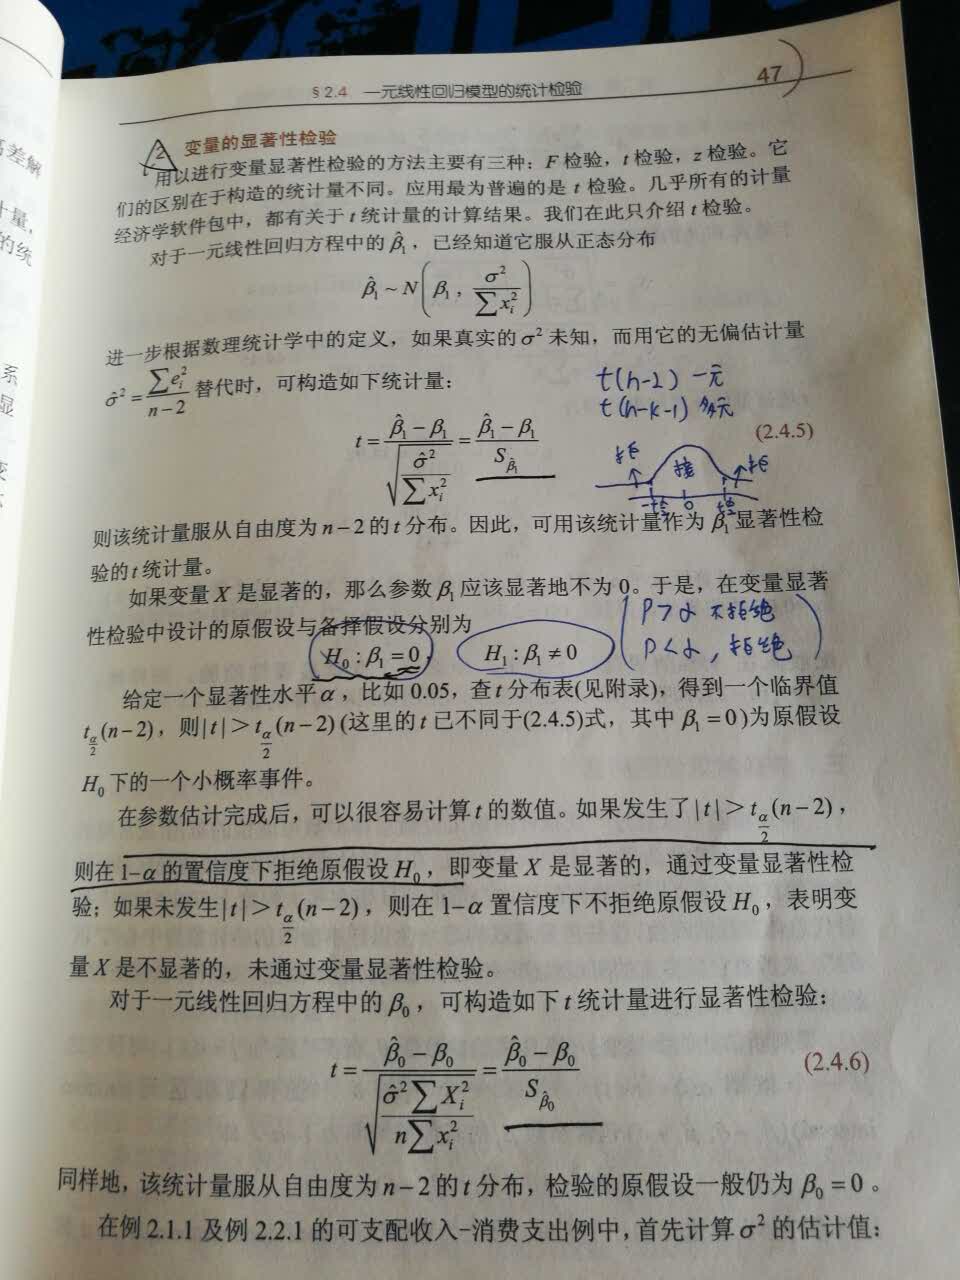 §2.4 一元线性回归模型的统计检验 47
2 变量的显著性检验
用以进行变量显著性检验的方法主要有三种：F 检验，t 检验，z 检验。它
们的区别在于构造的统计量不同。应用最为普遍的是 t 检验。几乎所有的计量
经济学软件包中，都有关于 t 统计量的计算结果。我们在此只介绍 t 检验。
对于一元线性回归方程中的 β̂₁，已经知道它服从正态分布
β̂₁ ~ N(β₁, σ²/∑xᵢ²)
进一步根据数理统计学中的定义，如果真实的 σ² 未知，而用它的无偏估计量
σ̂² = ∑eᵢ²/(n−2) 替代时，可构造如下统计量：
t(n-2) 一元
t(n-k-1) 多元
t = (β̂₁ − β₁)/√(σ̂²/∑xᵢ²) = (β̂₁ − β₁)/S_β̂₁ (2.4.5)
拒 接 拒
0
则该统计量服从自由度为 n−2 的 t 分布。因此，可用该统计量作为 β₁ 显著性检
验的 t 统计量。
如果变量 X 是显著的，那么参数 β₁ 应该显著地不为 0。于是，在变量显著
性检验中设计的原假设与备择假设分别为
P>α 不拒绝
P<α，拒绝
H₀ : β₁ = 0, H₁ : β₁ ≠ 0
给定一个显著性水平 α，比如 0.05，查 t 分布表(见附录)，得到一个临界值
t_{α/2}(n−2)，则|t| > t_{α/2}(n−2) (这里的 t 已不同于(2.4.5)式，其中 β₁ = 0)为原假设
H₀ 下的一个小概率事件。
在参数估计完成后，可以很容易计算 t 的数值。如果发生了|t| > t_{α/2}(n−2)，
则在 1−α 的置信度下拒绝原假设 H₀，即变量 X 是显著的，通过变量显著性检
验；如果未发生|t| > t_{α/2}(n−2)，则在 1−α 置信度下不拒绝原假设 H₀，表明变
量 X 是不显著的，未通过变量显著性检验。
对于一元线性回归方程中的 β₀，可构造如下 t 统计量进行显著性检验：
t = (β̂₀ − β₀)/√(σ̂²∑Xᵢ²/n∑xᵢ²) = (β̂₀ − β₀)/S_β̂₀ (2.4.6)
同样地，该统计量服从自由度为 n−2 的 t 分布，检验的原假设一般仍为 β₀ = 0。
在例 2.1.1 及例 2.2.1 的可支配收入-消费支出例中，首先计算 σ² 的估计值：